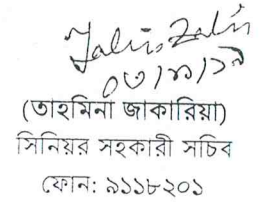 (তাহমিনা জাকারিয়া)
সিনিয়র সহকারী সচিব
ফোন: ৯১১৮২০১